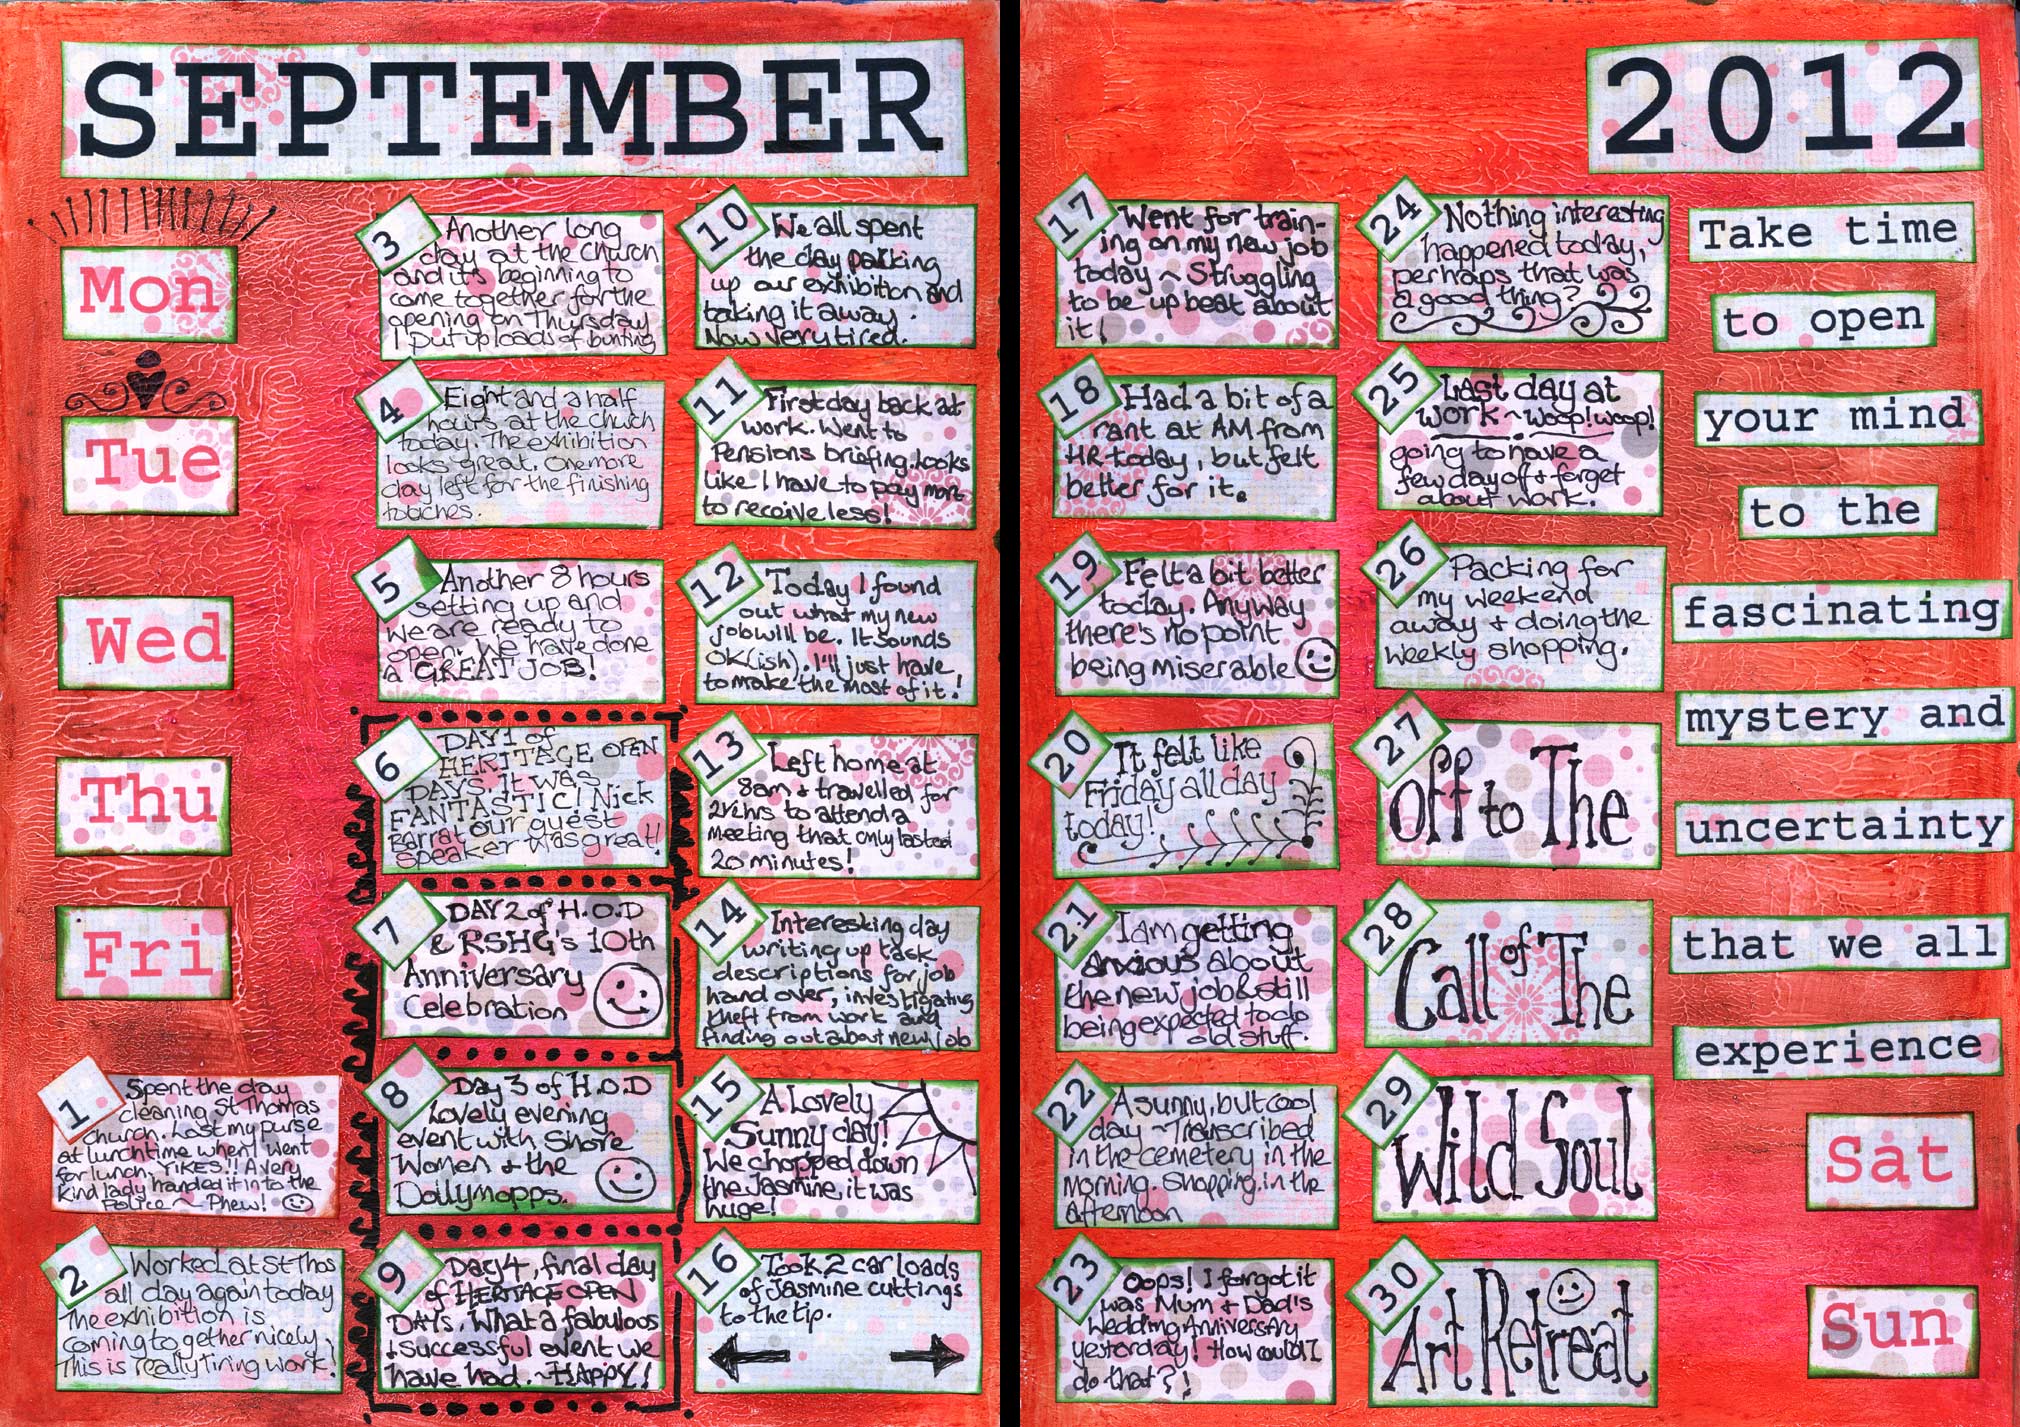 SEPTEMBER
2012
Mon
Tue
Wed
Thu
Fri
1
Spent the day
cleaning St Thomas
church. Lost my purse
at lunchtime when I went
for lunch. YIKES!! A very
kind lady handed it in to the
Police ~ Phew!
2
Worked at St Thos
all day again today
The exhibition is
coming together nicely,
This is really tiring work!
3
Another long
day at the church
and it's beginning to
come together for the
opening on Thursday
I put up loads of bunting
4
Eight and a half
hours at the church
today. The exhibition
looks great. One more
day left for the finishing
touches.
5
Another 8 hours
setting up and
we are ready to
open. We have done
a GREAT JOB!
6
DAY 1 of
HERITAGE OPEN
DAYS. It was
FANTASTIC! Nick
Barrat our guest
speaker was great!
7
DAY 2 of H.O.D
& RSHG's 10th
Anniversary
Celebration
8
Day 3 of H.O.D
Lovely evening
event with Shore
Women & the
Dollymopps.
9
Day 4, final day
of HERITAGE OPEN
DAYS. What a fabulous
& successful event we
have had. ~ HAPPY!
10
We all spent
the day packing
up our exhibition and
taking it away.
Now very tired.
11
First day back at
work. Went to
Pensions briefing. Looks
like I have to pay more
to receive less!
12
Today I found
out what my new
job will be. It sounds
OK(ish). I'll just have
to make the most of it!
13
Left home at
8am & travelled for
2½hrs to attend a
meeting that only lasted
20 minutes!
14
Interesting day
writing up task
descriptions for job
hand over, investigating
theft from work and
finding out about new job
15
A Lovely
Sunny day!
We chopped down
the Jasmine, it was
huge!
16
Took 2 car loads
of Jasmine cuttings
to the tip.
17
Went for train-
ing on my new job
today ~ Struggling
to be up beat about
it!
18
Had a bit of a
rant at AM from
HR today, but felt
better for it.
19
Felt a bit better
today. Anyway
there's no point
being miserable
20
It felt like
Friday all day
today!
21
I am getting
anxious about
the new job & still
being expected to do
old stuff.
22
A sunny, but cool
day ~ Transcribed
in the cemetery in the
morning. Shopping in the
afternoon
23
Oops! I forgot it
was Mum & Dad's
Wedding Anniversary
yesterday! How could I
do that?!
24
Nothing interesting
happened today,
perhaps that was
a good thing?
25
Last day at
work ~ Woop! woop!
going to have a
few day off & forget
about work.
26
Packing for
my weekend
away & doing the
weekly shopping.
27
Off to The
28
Call of The
29
Wild Soul
30
Art Retreat
Take time
to open
your mind
to the
fascinating
mystery and
uncertainty
that we all
experience
Sat
Sun